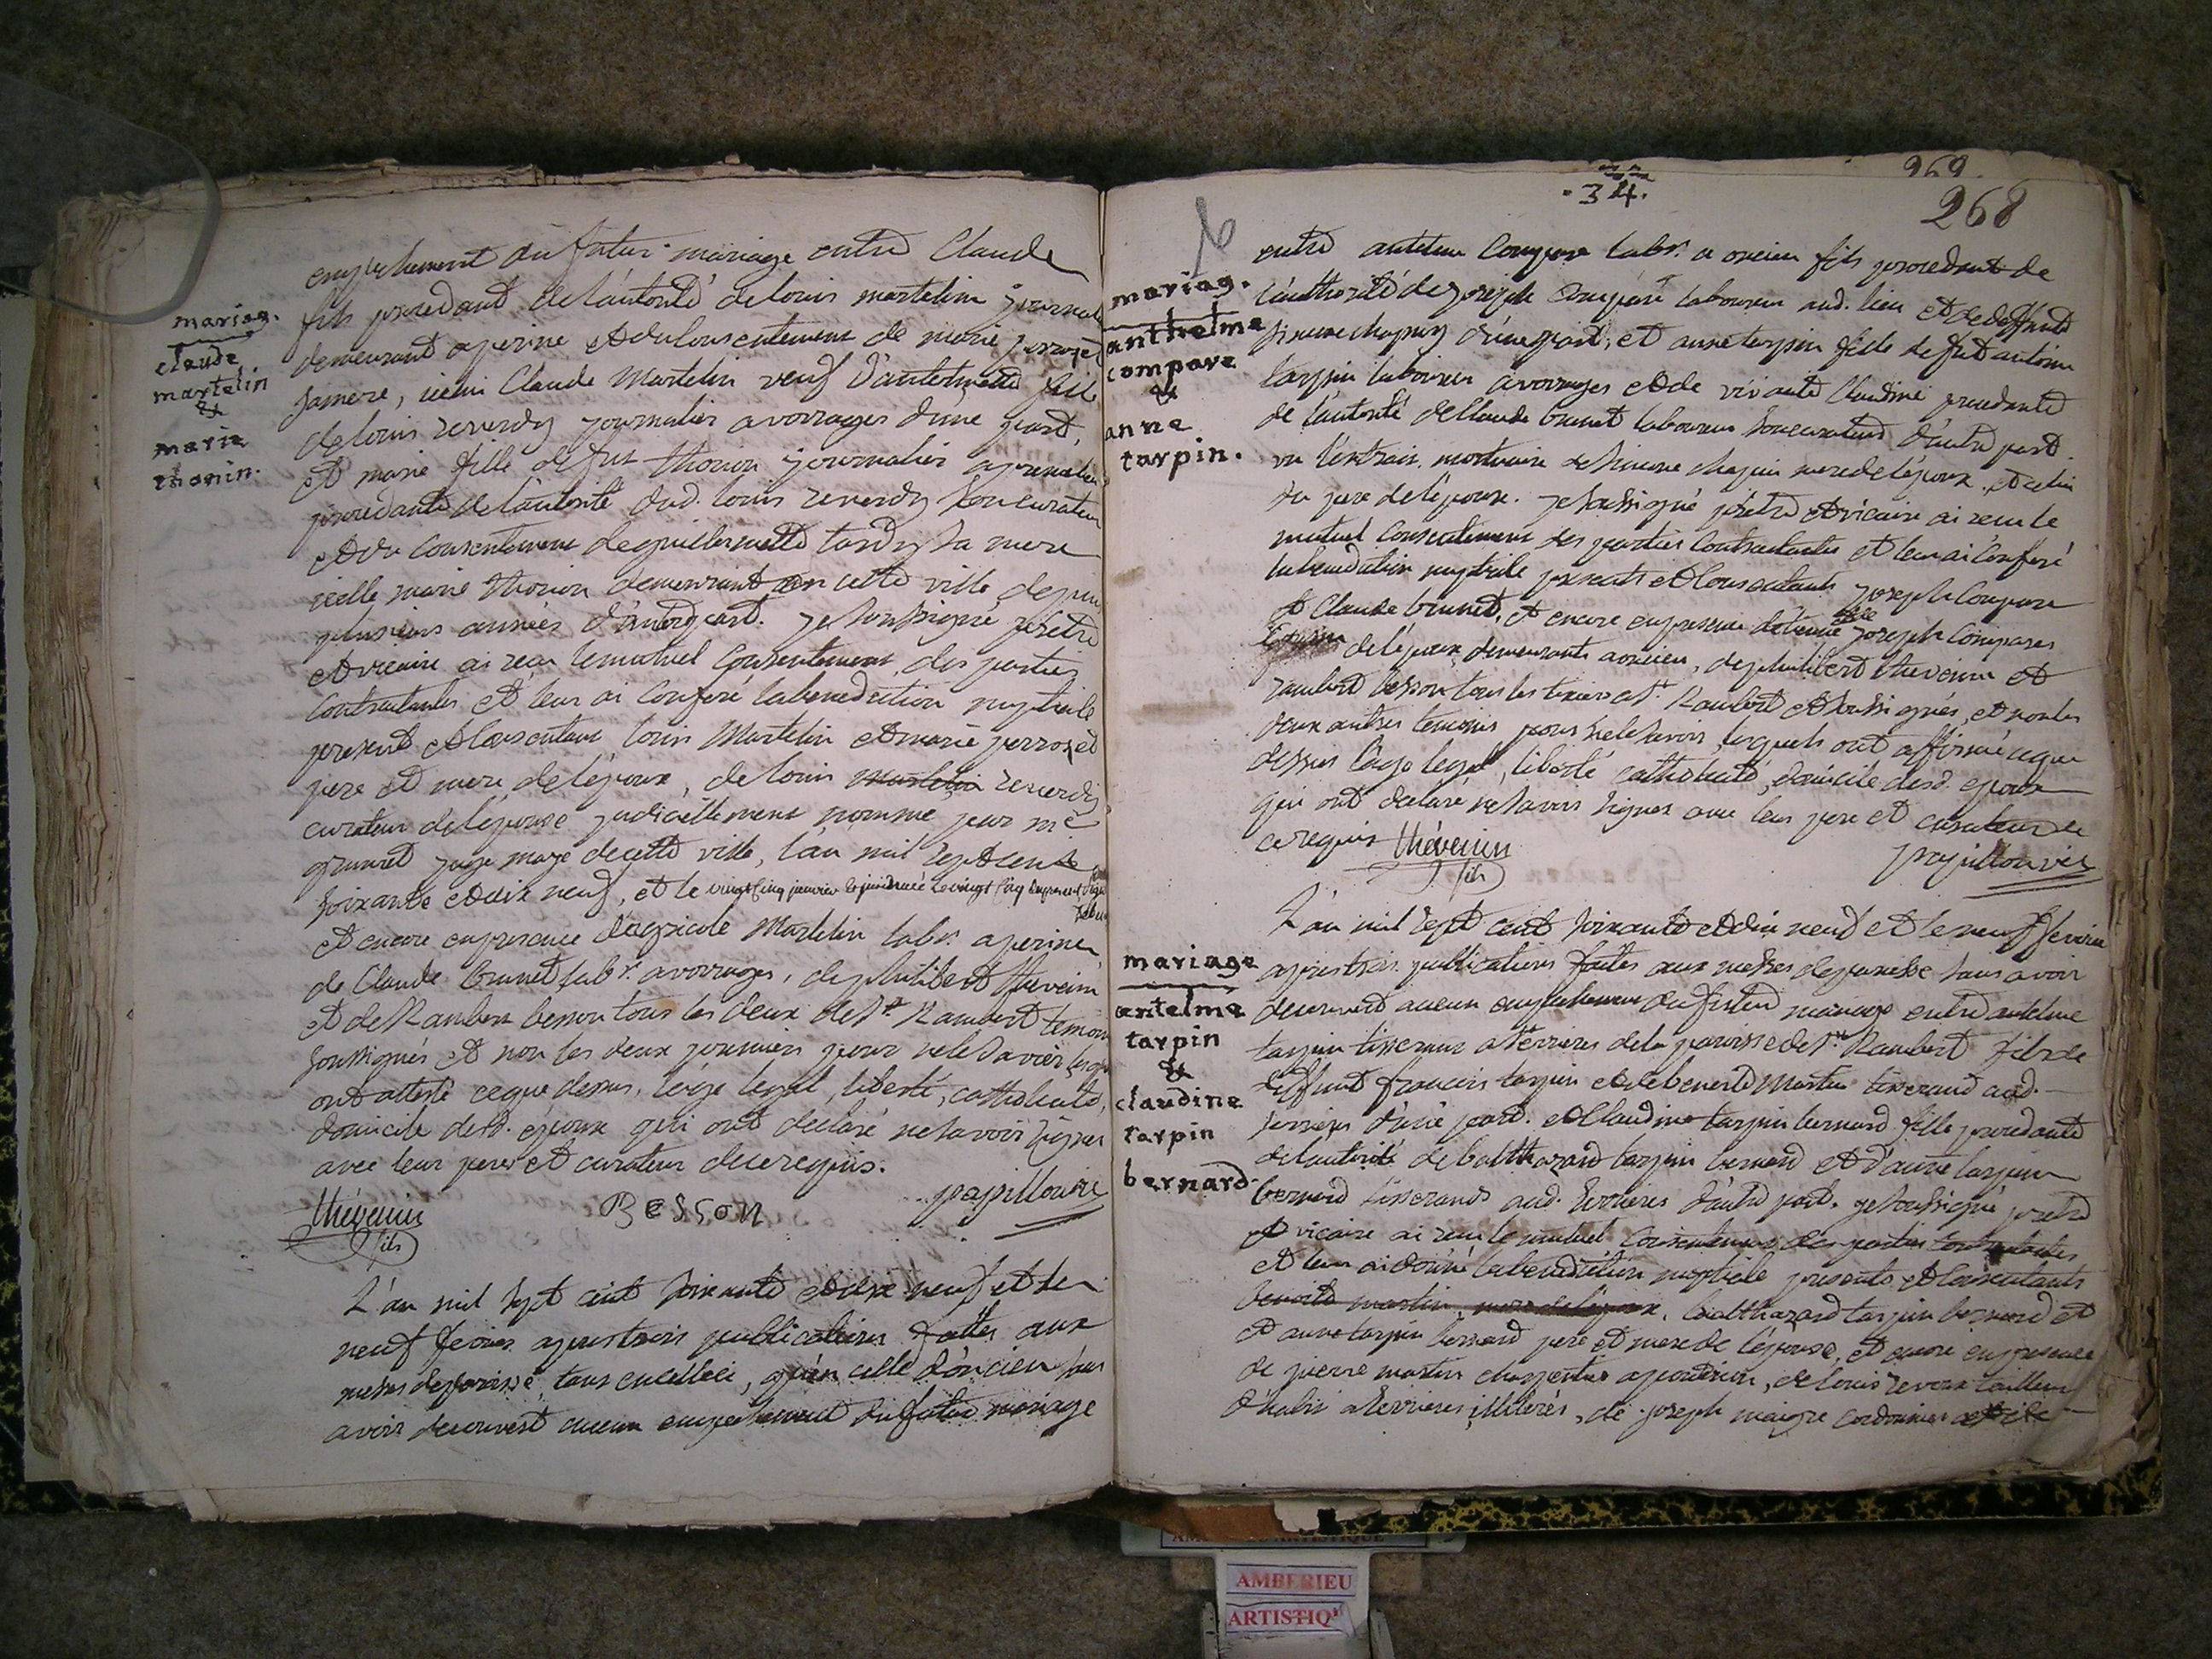 mariag.
claude
martelin
&
marie
thonin.
empechement du futur mariage entre Claude
fils procedant de l'autorité de louis martelin journal
demeurant a perine et du consentement de marie perrozet
sa mere, icelui Claude Martelin veuf d'antelmette fille
de louis reverdy journalier a vorages d'une part,
et marie fille de fut thonin journalier
procedante de l'autorité dud. louis reverdy son curateur
et du consentement de guillermette tardy sa mere
icelle marie thonin demeurant en cette ville depuis
plusieurs années d'autre part. je soussigné prêtre
et vicaire ai reçu le mutuel consentement des parties
contractantes et leur ai conferé la benediction nuptiale
present et consentant louis Martelin et marie perrozet
pere et mere de l'époux, de louis martelin reverdy
curateur de l'épouse judiciellement nommé par me
grumet juge mage de cette ville, l'an mil sept cent
soixante et dix neuf, et le vingt cinq janvier
et encore en presence d'agricole Martelin labr. a perine
de Claude brunet labr. a vorages, de philibert thevenin
et de Rambert besson tous les deux de St. Rambert temoins
soussignés et non les deux premiers pour ne le savoir
ont attesté ce que dessus, l'age legal, liberté, catholicité,
domicile desd. époux qui ont declaré ne savoir signer
avec leur pere et curateur de ce requis.
thévenin fils
Besson
papillon vic
L'an mil sept cent soixante et dix neuf et le
neuf fevrier apres trois publications faites aux
messes de paroisse, tant en celle ci, qu'en celle d'oncieu sans
avoir decouvert aucun empechement du futur mariage
34.
269.
268
mariag.
anthelme
compare
&
anne
tarpin.
entre antelme Compare labr. a oncieu fils procedant de
l'authorité de joseph Compare laboureur aud. lieu et de deffunte
simone chapuy d'une part, et anne tarpin fille de fut antoine
tarpin laboureur a vorages et de vivante Claudine procedante
de l'autorité de Claude brunet laboureur son curateur d'autre part.
vu l'extrait mortuaire de simone chapuis mere de l'époux, et celui
du pere de l'épouse. je soussigné prêtre et vicaire ai reçu le
mutuel consentement des parties contractantes et leur ai conferé
la benediction nuptiale presents et consentants joseph Compare
et Claude brunet, et encore en presence de joseph Compare
de l'époux demeurants a oncieu, de philibert thevenin et
rambert besson tous les deux de St. Rambert et soussignés, et non les
deux autres temoins pour ne le savoir, lesquels ont affirmé ce que
dessus l'age legal, liberté catholicité, domicile desd. epoux
qui ont declaré ne savoir signer avec leur pere et curateur de
ce requis thévenin fils
papillon vic
L'an mil sept cent soixante et dix neuf et le neuf fevrier
mariage
antelme
tarpin
&
claudine
tarpin
bernard.
apres trois publications faites aux messes de paroisse sans avoir
decouvert aucun empechement du futur mariage entre antelme
tarpin tisserand a serrieres de la paroisse de St. Rambert fils de
deffunt francois tarpin et de benoite Martin tisserand aud.
serrieres d'une part. et Claudine tarpin bernard fille procedante
de l'autorité de balthazard tarpin bernard et d'anne tarpin
bernard tisserands aud. serrieres d'autre part. je soussigné prêtre
et vicaire ai reçu le mutuel consentement des parties contractantes
et leur ai donné la benediction nuptiale presents et consentants
benoite martin mere de l'époux, balthazard tarpin bernard et
et anne tarpin bernard pere et mere de l'épouse, et encore en presence
de pierre martin charpentier, de louis revoux tailleur
d'habis a serrieres illiterés, de joseph maigre cordonnier
AMBERIEU
ARTISTIQ